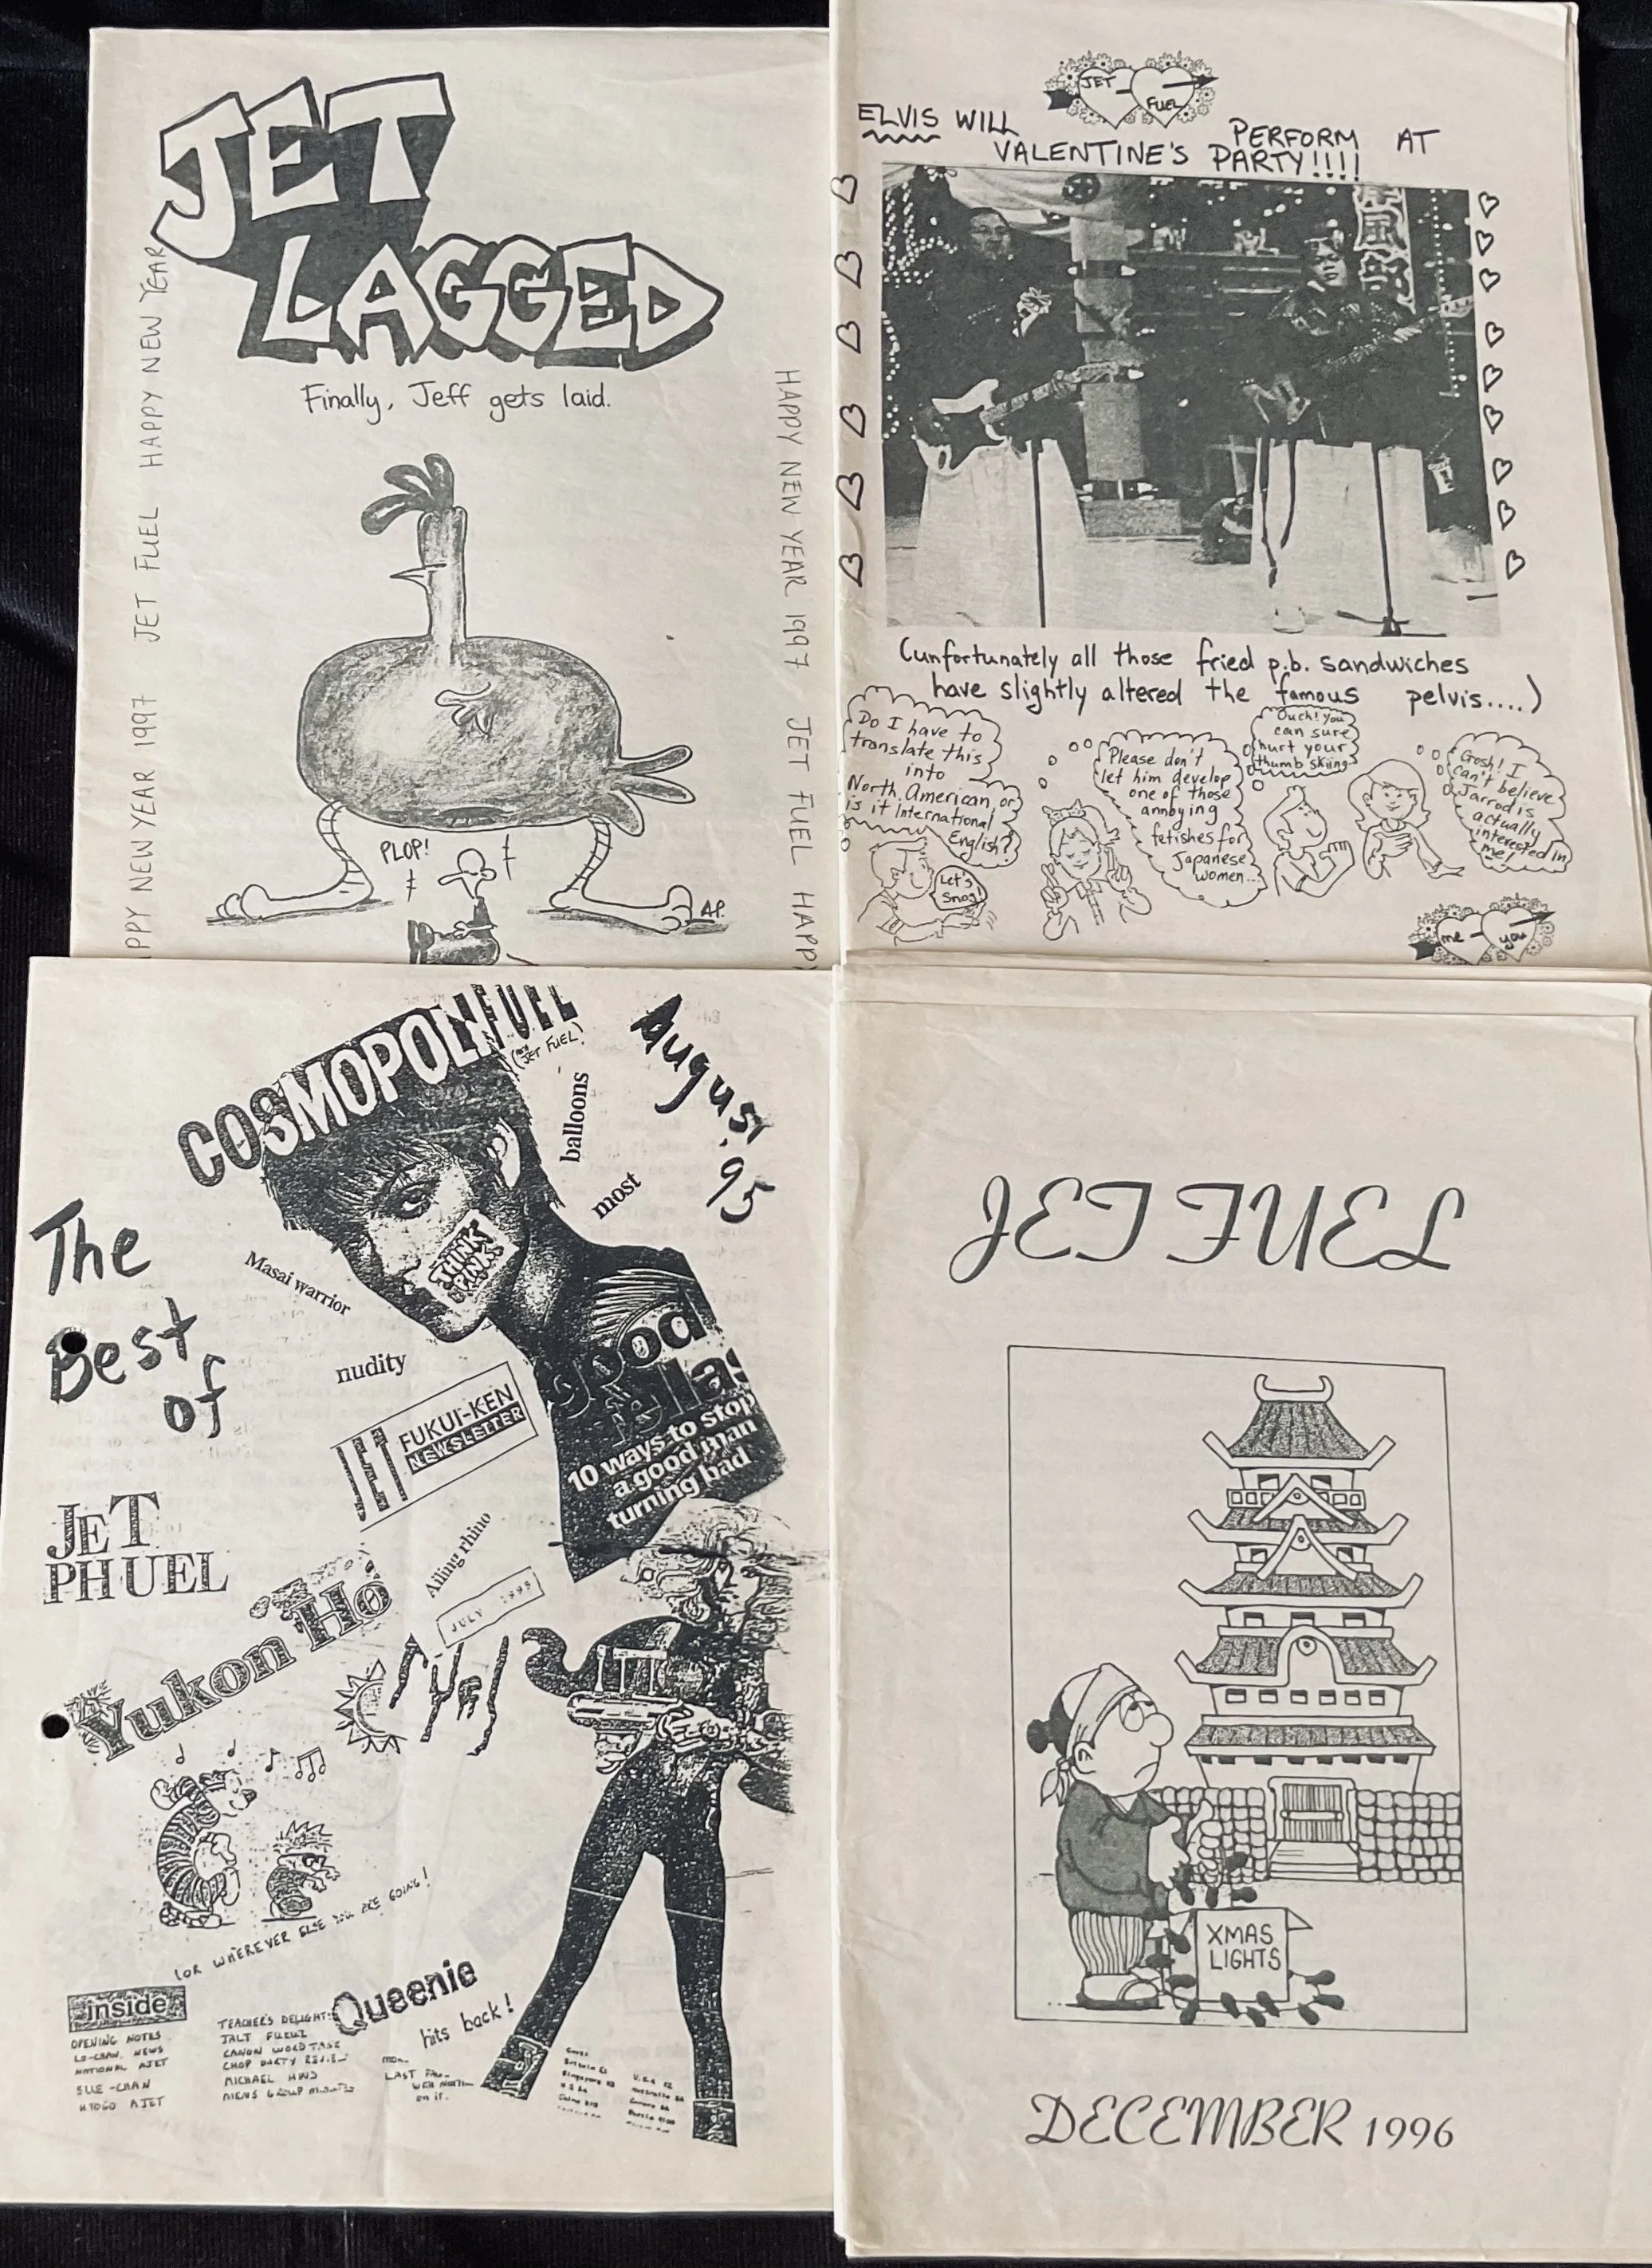 JET
LAGGED
Finally, Jeff gets laid.
HAPPY NEW YEAR 1997 JET FUEL HAPPY NEW YEAR
HAPPY NEW YEAR 1997 JET FUEL HAPPY
PLOP!
A.P.
JET
FUEL
ELVIS WILL PERFORM AT
VALENTINE'S PARTY!!!!
(unfortunately all those fried p.b. sandwiches
have slightly altered the famous pelvis....)
Do I have to
translate this
into
North American, or
is it International
English?
Let's
Snog
Please don't
let him develop
one of those
annoying
fetishes for
Japanese
women...
Ouch! you
can sure
hurt your
thumb skiing
Gosh! I
can't believe
Jarrod is
actually
interested in
me!
me
you
COSMOPOLIFUEL
JET FUEL)
August
'95
balloons
most
The
Best
of
THINK
PINK
Masai warrior
nudity
JET
FUKUI-KEN
NEWSLETTER
good
10 ways to stop
a good man
turning bad
JET
PHUEL
Ailing rhino
JULY 1995
Yukon Ho
FUEL
(OR WHEREVER ELSE YOU ARE GOING!
inside
OPENING NOTES
LO-CHAN NEWS
NATIONAL AJET
SUE-CHAN
HYOGO AJET
TEACHER'S DELIGHT:
JALT FUKUI
CANON WORD TANK
CHOP PARTY REVIEW
MICHAEL HWD
MENS GROUP MINUTES
Queenie
hits back!
JET FUEL
XMAS
LIGHTS
DECEMBER 1996